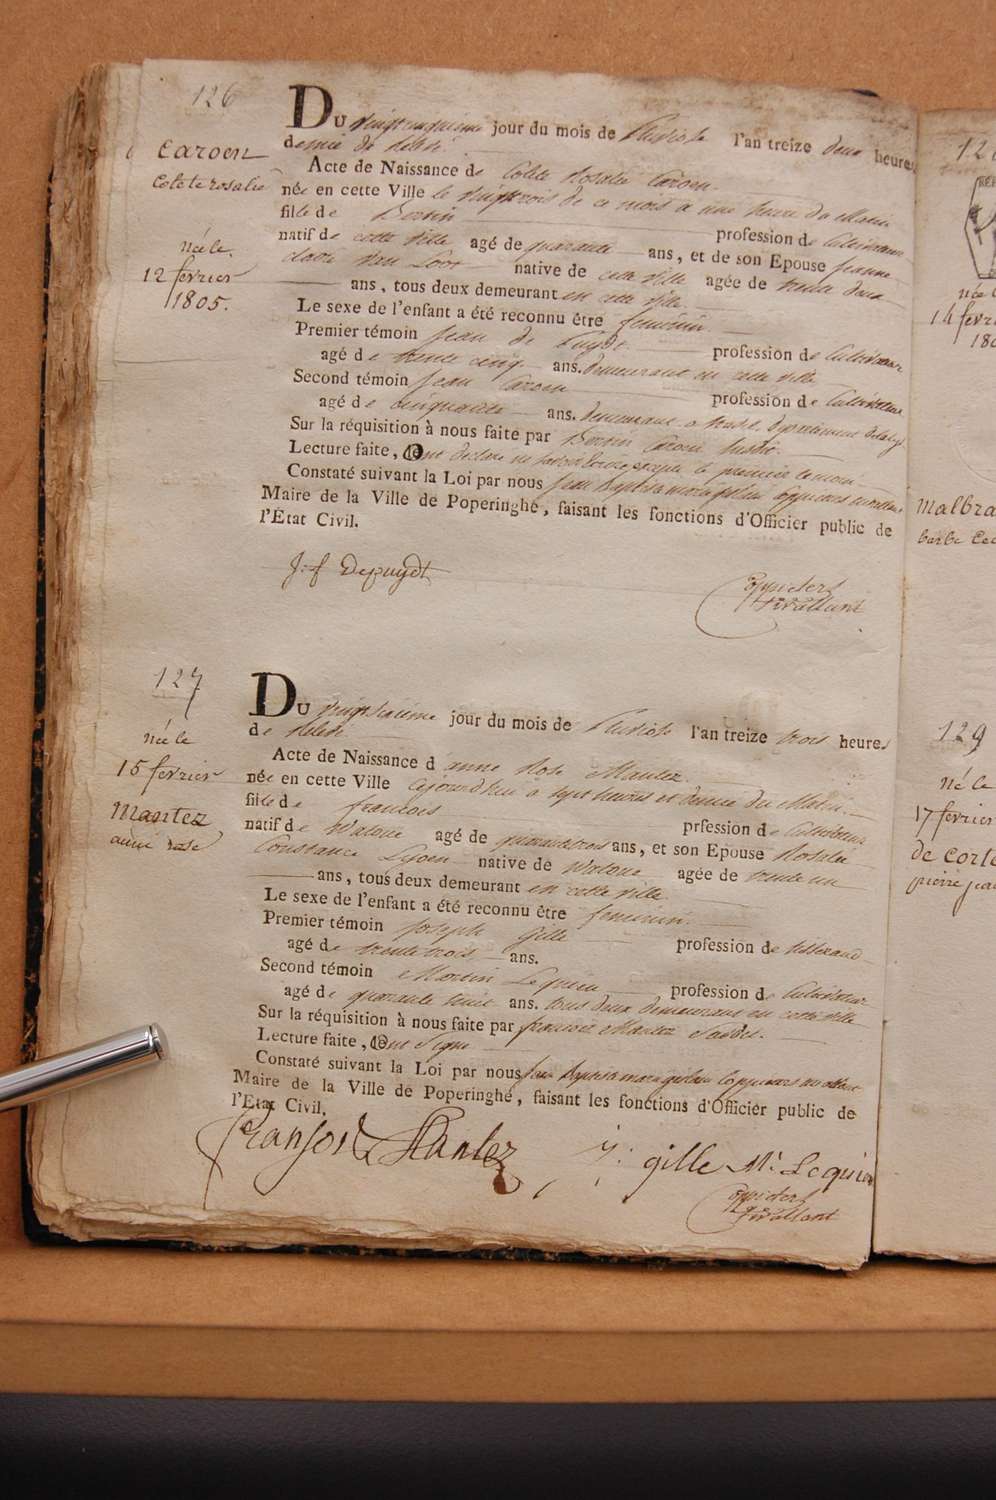 126
Caroen
Colete rosalie
née le
12 fevrier
1805.
Du vingtcinquieme jour du mois de Pluviose l'an treize deux heures
demie de relevé
Acte de Naissance de Colette Rosalie Caroen
née en cette Ville le vingttrois de ce mois a une heure du Matin
fille de Bertin profession de Cultivateur
natif de cette ville agé de quarante ans, et de son Epouse Jeanne
Van Loot native de cette ville agée de trente deux
ans, tous deux demeurant en cette ville
Le sexe de l'enfant a été reconnu être feminin.
Premier témoin Jean de Puydt profession de Cultivateur
agé de trente cinq ans. demeurant en cette ville
Second témoin Jean Caroen profession de Cultivateur
agé de cinquante ans. demeurant a departement de la Lys
Sur la réquisition à nous faite par Bertin Caroen
Lecture faite, ont declaré ne savoir écrire excepté le premier temoin
Constaté suivant la Loi par nous Jean Baptiste
Maire de la Ville de Poperinghe, faisant les fonctions d'Officier public de
l'État Civil.
J. f Depuydt
127
née le
15 fevrier
Mantez
anne rose
Du vingtsixieme jour du mois de Pluviose l'an treize trois heures
de relevé
Acte de Naissance d anne Rose Mantez
née en cette Ville cejourd'hui a sept heures et demie du Matin
fille de francois prfession de Cultivateur
natif de Watoue agé de quarantetrois ans, et son Epouse Rosalie
Constance Lyoen native de Watoue agée de trente un
ans, tous deux demeurant en cette ville
Le sexe de l'enfant a été reconnu être feminin.
Premier témoin Joseph Gille profession de tisserand
agé de trentetrois ans.
Second témoin Martin Lequieu profession de Cultivateur
agé de quarante huit ans. tous deux demeurant en cette ville
Sur la réquisition à nous faite par francois Mantez
Lecture faite, ont signé
Constaté suivant la Loi par nous Jean Baptiste
Maire de la Ville de Poperinghe, faisant les fonctions d'Officier public de
l'Etat Civil.
fransois Mantez J: gille M: Lequieu
14 fevr
Malbra
129
né le
17 fevrier
de corte